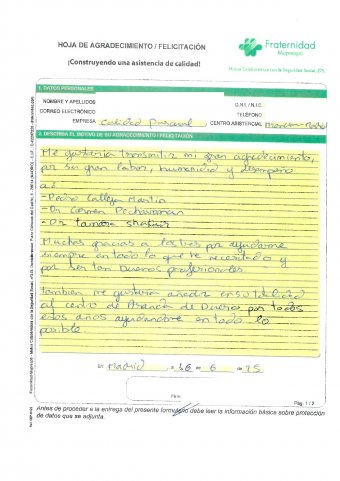 HOJA DE AGRADECIMIENTO / FELICITACIÓN
¡Construyendo una asistencia de calidad!
Fraternidad
Muprespa
Mutua Colaboradora con la Seguridad Social, 275
1. DATOS PERSONALES
NOMBRE Y APELLIDOS
D.N.I. / N.I.E.
CORREO ELECTRÓNICO
TELÉFONO
EMPRESA Calidad Pascual CENTRO ASISTENCIAL
2. DESCRIBA EL MOTIVO DE SU AGRADECIMIENTO / FELICITACIÓN
Me gustaria transmitir mi gran agradecimiento,
por su gran labor, humanidad y desempeño
a:
- Pedro Calleja Martin
- Dr Carmen
- Dr Tamara
Muchas gracias a los tres por ayudarme
siempre en todo lo que he necesitado y
por ser tan buenos profesionales.
Tambien me gustaria añadir en su totalidad
al centro de Aranda de Duero por todos
estos años ayudandome en todo lo
posible.
En Madrid, a 16 - 6 - 25
Firma
Pág. 1 / 2
Antes de proceder a la entrega del presente formulario debe leer la información básica sobre protección
de datos que se adjunta.